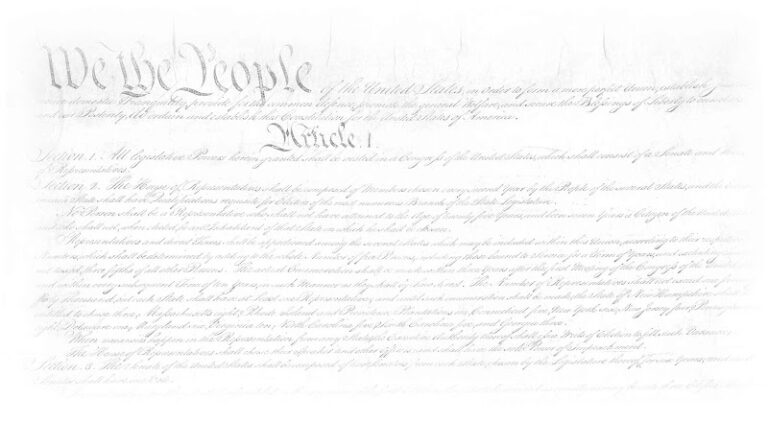 We the People of the United States, in Order to form a more perfect Union, establish
domestic Tranquility, provide for the common defence, promote the general Welfare, and secure the Blessings of Liberty to ourselves
and our Posterity, do ordain and establish this Constitution for the United States of America.
Article. I.
Section. 1. All legislative Powers herein granted shall be vested in a Congress of the United States, which shall consist of a Senate and
of Representatives.
Section. 2. The House of Representatives shall be composed of Members chosen every second Year by the People of the several States, and the
State shall have Qualifications requisite for Electors of the most numerous Branch of the State Legislature.
No Person shall be a Representative who shall not have attained to the Age of twenty five Years, and been seven Years a Citizen of the United
who shall not, when elected, be an Inhabitant of that State in which he shall be chosen.
Representatives and direct Taxes shall be apportioned among the several States which may be included within this Union, according to their respective
Numbers, which shall be determined by adding to the whole Number of free Persons, including those bound to Service for a Term of Years, and excluding
not taxed, three fifths of all other Persons. The actual Enumeration shall be made within three Years after the first Meeting of the Congress of the United
and within every subsequent Term of ten Years, in such Manner as they shall by Law direct. The Number of Representatives shall not exceed one for
thirty Thousand, but each State shall have at Least one Representative; and until such enumeration shall be made, the State of New Hampshire shall
entitled to chuse three, Massachusetts eight, Rhode Island and Providence Plantations one, Connecticut five, New York six, New Jersey four, Pennsylvania
eight, Delaware one, Maryland six, Virginia ten, North Carolina five, South Carolina five, and Georgia three.
When vacancies happen in the Representation from any State, the Executive Authority thereof shall issue Writs of Election to fill such Vacancies.
The House of Representatives shall chuse their Speaker and other Officers; and shall have the sole Power of Impeachment.
Section. 3. The Senate of the United States shall be composed of two Senators from each State, chosen by the Legislature thereof, for six Years; and
Senator shall have one Vote.